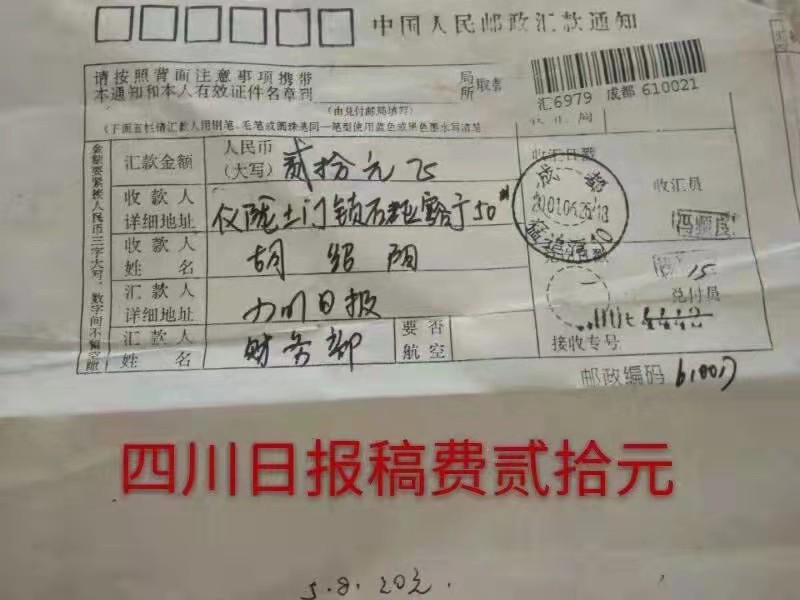 中国人民邮政汇款通知
请按照背面注意事项携带
本通知和本人有效证件名章到
局
所
取款
(由兑付邮局填写)
汇6979 成都 610021
(下面五栏请汇款人用钢笔、毛笔或圆珠笔同一笔型使用蓝色或黑色墨水写清楚
收汇局
金额要紧接人民币三字大写,数字间不留空隙
汇款金额
人民币
(大写)
贰拾元
收汇日戳
收汇员
收款人
详细地址
仪陇土门
收款人
姓名
胡绍阳
汇款人
详细地址
四川日报
汇款人
姓名
财务部
要否
航空
成都
15
兑付员
接收专号
邮政编码
四川日报稿费贰拾元
5.8. 20元.